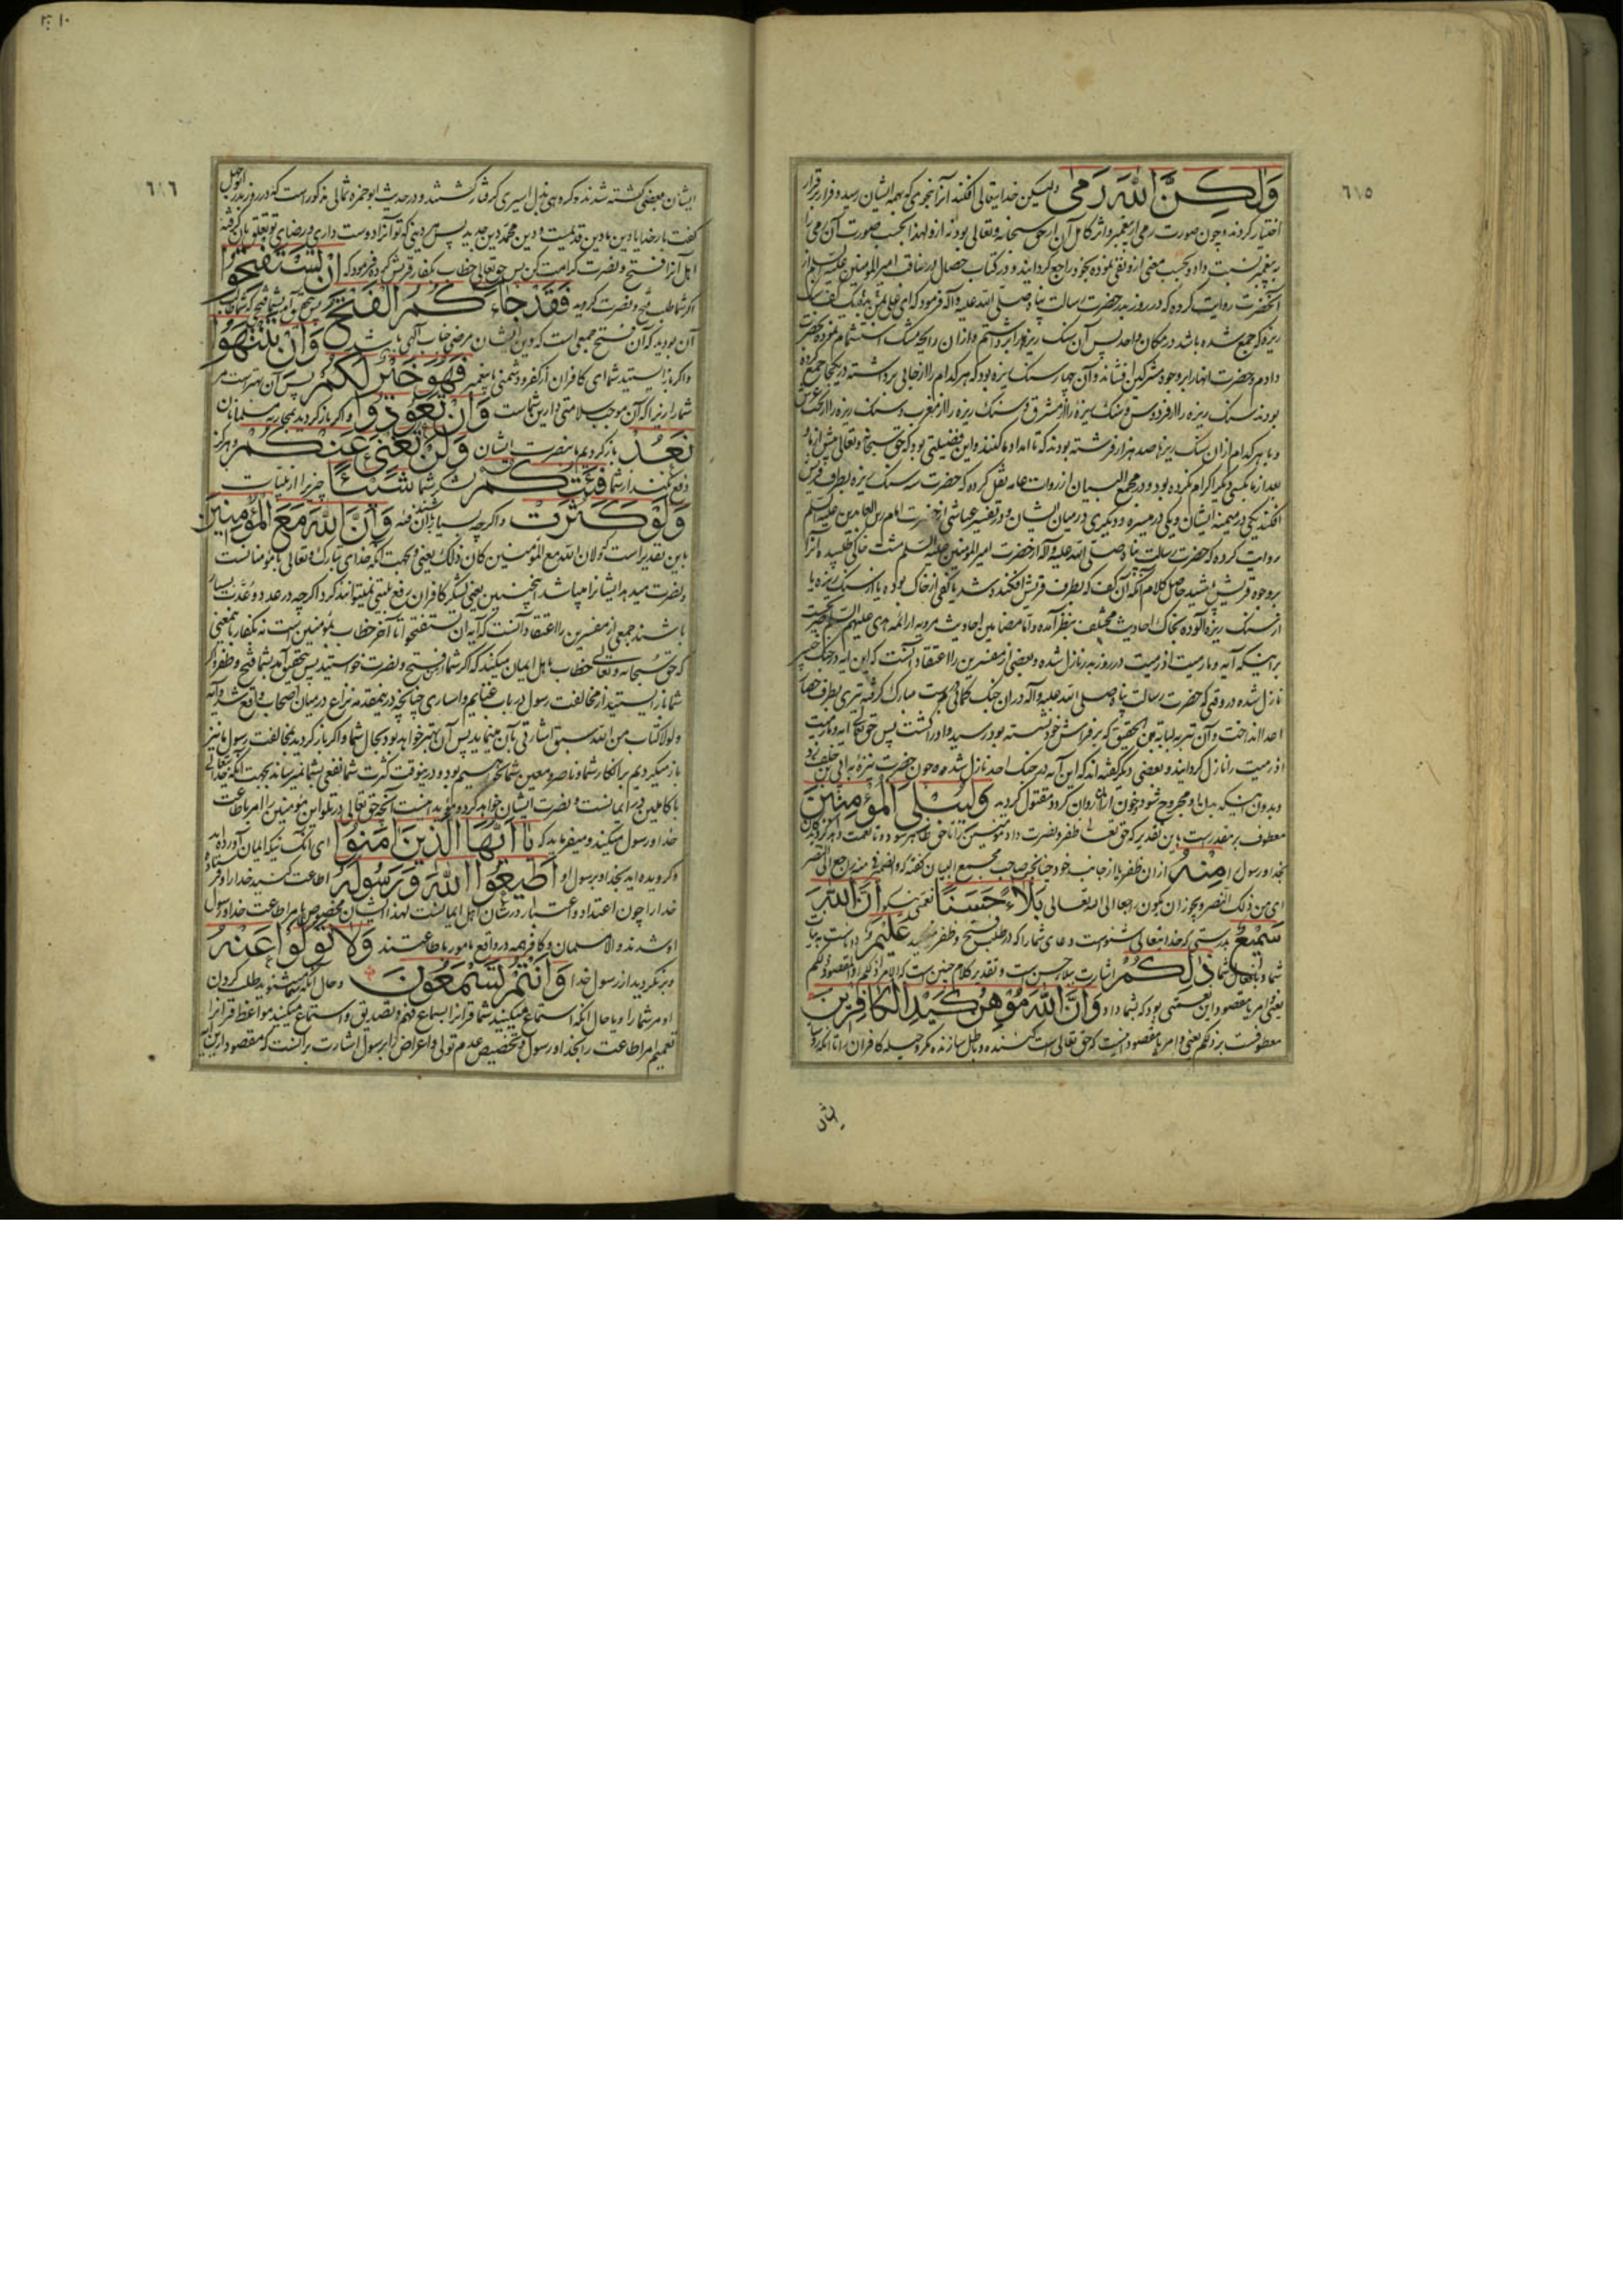 ٦١٥
وَلَكِنَّ اللَّهَ رَمَى ولیکن خدایتعالی افکند آنرا که بهمه ایشان رسید و فرار بر قرار
اختیار کردند و چون صورت رمی از پیغمبر و اثر کامل آن از حق سبحانه و تعالی بود نه ازو لهذا بحسب صورت آن رمی را
به پیغمبر نسبت داد و بحسب معنی ازو نفی نموده بخود راجع گردانید و در کتاب خصال در مناقب امیر المؤمنین علیه السلام از
آنحضرت روایت کرده که در روز بدر حضرت رسالت پناه صلی الله علیه وآله فرمود که ای علی کف سنک
ریزه که جمع شده باشد در مکان واحد پس آن سنک ریزها را برداشتم و ازان رایحه مشک استشمام نموده بحضرت
دادم و حضرت آنها را بر وجوه مشرکین فشاند و آن چهار سنک ریزه بود که هر کدام را از جایی برداشته در یکجا جمع کرده
بودند سنک ریزه را از فردوس و سنک ریزه را از مشرق و سنک ریزه را از مغرب و سنک ریزه را از تحت عرش
و با هر کدام ازان سنک ریزها صد هزار فرشته بودند که تا امداد ما کنند و این فضیلتی بود که حق سبحانه و تعالی پیش از ما و
بعد از ما بکسی دیگر اکرام نکرده بود و در مجمع البیان از روات عامه نقل کرده که حضرت سه سنک ریزه بطرف قریش
افکند یکی در میمنه ایشان و یکی در میسره و دیگری در میان ایشان و در تفسیر عیاشی از حضرت امام زین العابدین علیه السلم
روایت کرده که حضرت رسالت پناه صلی الله علیه وآله از حضرت امیر المؤمنین علیه السلم مشت خاکی طلبیده آنرا
بر وجوه قریش پاشید حاصل کلام آنکه آن کف که بطرف قریش افکنده شد یا کفی از خاک بوده یا از سنک ریزه یا
از سنک ریزه آلوده بخاک احادیث مختلف بنظر آمده و اما مضامین احادیث مرویه از ائمه هدی علیهم السلم
براینکه آیه و ما رمیت اذ رمیت در روز بدر نازل شده و بعضی از مفسرین را اعتقاد آنست که این آیه در جنک خیبر
نازل شده در وقتی که حضرت رسالت پناه صلی الله علیه وآله دران جنک کمانی بدست مبارک گرفته تیری بطرف حصار
اعدا انداخت و آن تیر به لبابة بن الحقیق که بر فراش خود نشسته بود رسید و او را کشت پس حق تعالی آیه و ما رمیت
اذ رمیت را نازل گردانید و بعضی دیگر گفته اند که این آیه در جنک احد نازل شده چون حضرت نیزه به ابی بن خلف زد
و بدون اینکه بدن او مجروح شود خون ازان روان کرد و مقتول گردید وَلِيُبْلِيَ الْمُؤْمِنِينَ
معطوف بر مقدر است باین تقدیر که حق تعالی ظفر و نصرت داد مؤمنین را تا حق ظاهر شود و تا نعمت دهد گروندگان
بخدا و رسول را مِنْهُ ازان ظفر یا از جانب خود چنانچه صاحب مجمع البیان گفته که و الضمیر فی منه راجع الی النصر
ای من ذلک النصر و یجوز ان یکون راجعا الی الله تعالی بَلَاءً حَسَنًا نعمتی نیکو إِنَّ اللَّهَ
سَمِيعٌ بدرستی که خدایتعالی شنواست دعای شما را که در طلب فتح و ظفر میکنید عَلِيمٌ و داناست به نیات
شما و بافعال شما ذَلِكُمْ اشارت ببلاء حسن است و تقدیر کلام چنین است که الامر ذلکم او المقصود ذلکم
یعنی امر یا مقصود این نعمتی بود که بشما داد وَأَنَّ اللَّهَ مُوهِنُ كَيْدِ الْكَافِرِينَ
معطوفست بر ذلکم یعنی و امر یا مقصود اینست که حق تعالی سست کننده و باطل سازنده مکر و حیله کافران است تا آنکه رؤسای
یشان
٦١٦
ایشان بعضی کشته شدند و گروهی بذل اسیری گرفتار گشتند و در حدیث ابو حمزه ثمالی مذکور است که در روز بدر ابو جهل
گفت بار خدایا دین ما دین قدیمست و دین محمد دین جدید پس هر دینی که تو آنرا دوست داری و رضای تو بتعلق بآن گرفته
اهل آنرا فتح و نصرت کرامت کن پس حق تعالی خطاب بکفار قریش کرده فرمود که إِنْ تَسْتَفْتِحُوا
اگر شما طلب فتح و نصرت کردید فَقَدْ جَاءَكُمُ الْفَتْحُ پس بتحقیق آمد بشما فتح
آن بودید که آن فتح جمعی است که دین ایشان مرضی جناب الهی باشد وَإِنْ تَنْتَهُوا
و اگر باز ایستید شما ای کافران از کفر و دشمنی پیغمبر فَهُوَ خَيْرٌ لَكُمْ پس آن بهتر است مر
شما را زیرا که آن موجب سلامتی دارین شماست وَإِنْ تَعُودُوا و اگر باز گردید بمحاربه مسلمانان
نَعُدْ باز گردیم ما بنصرت ایشان وَلَنْ تُغْنِيَ عَنْكُمْ و هرگز
دفع نکند از شما فِئَتُكُمْ لشکر شما شَيْئًا چیزی را از بلیات
وَلَوْ كَثُرَتْ و اگر چه بسیار باشند آن فئه وَأَنَّ اللَّهَ مَعَ الْمُؤْمِنِينَ
باین تقدیر است که و لان الله مع المؤمنین کان ذلک یعنی و بجهت آنکه خدای تبارک و تعالی با مؤمنانست
و نصرت میدهد ایشانرا میباشد اینچنین یعنی لشکر کافران دفع بلیتی نمیتوانند کرد اگر چه در عدد و عدّت بسیار
باشند و جمعی از مفسرین را اعتقاد آنست که آیه ان تستفتحوا تا آخر خطاب بمؤمنین است نه بکفار باینمعنی
که حق سبحانه و تعالی خطاب باهل ایمان میکند که اگر شما فتح و نصرت خواستید پس بتحقیق آمد بشما فتح و ظفر و اگر
شما باز ایستید از مخالفت رسول در باب غنایم و اساری چنانچه درینمقدمه نزاع در میان اصحاب واقع شد و آیه
و لولا کتاب من الله سبق اشارتی بآن مینماید پس آن بهتر خواهد بود بحال شما و اگر باز گردید بمخالفت رسول ما نیز
باز میگردیم بر انکار شما و ناصر و معین شما نخواهیم بود و درینوقت کثرت شما نفعی بشما نمیرساند بجهت آنکه خدای تعالی
با کاملین در ایمانست و نصرت ایشان خواهد کرد و مؤید اینست آنچه حق تعالی در تلو این مؤمنین را امر باطاعت
خدا و رسول میکند و میفرماید که يَا أَيُّهَا الَّذِينَ آمَنُوا ای آنکسانیکه ایمان آورده اید
و گرویده اید بخدا و برسول او أَطِيعُوا اللَّهَ وَرَسُولَهُ اطاعت کنید خدا را و فرستاده
خدا را چون اعتداد و اعتبار در شان اهل ایمانست لهذا ایشان مخصوص بامر اطاعت خدا و رسول
او شدند و الا مسلمان و کافر همه در واقع مامور باطاعتند وَلَا تَوَلَّوْا عَنْهُ
و بر نگردید از رسول خدا وَأَنْتُمْ تَسْمَعُونَ و حال آنکه شما میشنوید طلب کردن
او مر شما را و یا حال آنکه استماع میکنید شما قرآنرا بسماع فهم و تصدیق و استماع میکنید مواعظ قرآنرا
تعمیم امر اطاعت را بخدا و رسول و تخصیص عدم تولی و اعراض را برسول اشارت بر آنست که مقصود ازین آیه